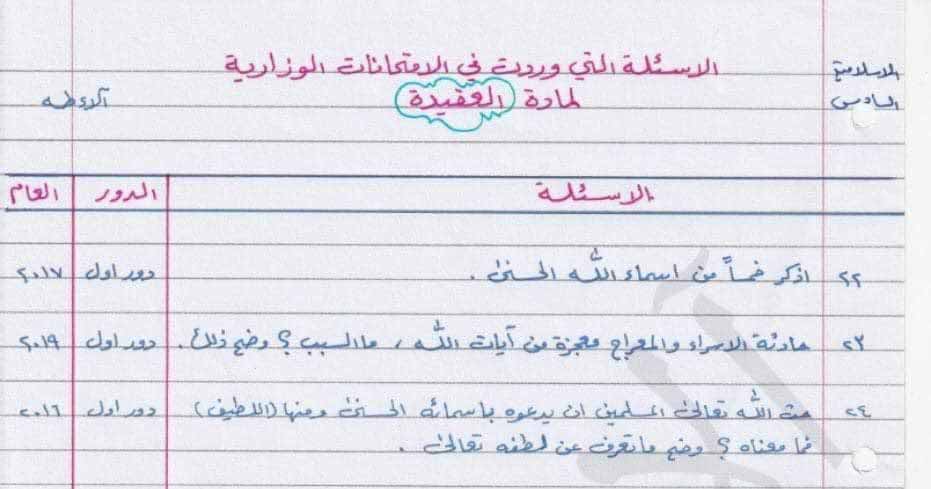 الاسئلة التي وردت في الامتحانات الوزارية
لمادة (العقيدة)
الاسلامية
السادس
آلاء طه
الاسئلة الدور العام
٢٢ اذكر خمساً من اسماء الله الحسنى . دور اول ٢٠١٧
٢٣ حادثة الاسراء والمعراج معجزة من آيات الله ، ما السبب ؟ وضح ذلك . دور اول ٢٠١٩
٢٤ حث الله تعالى المسلمين ان يدعوه باسمائه الحسنى ومنها (اللطيف) دور اول ٢٠١٦
فما معناه ؟ وضح ما تعرف عن لطفه تعالى .